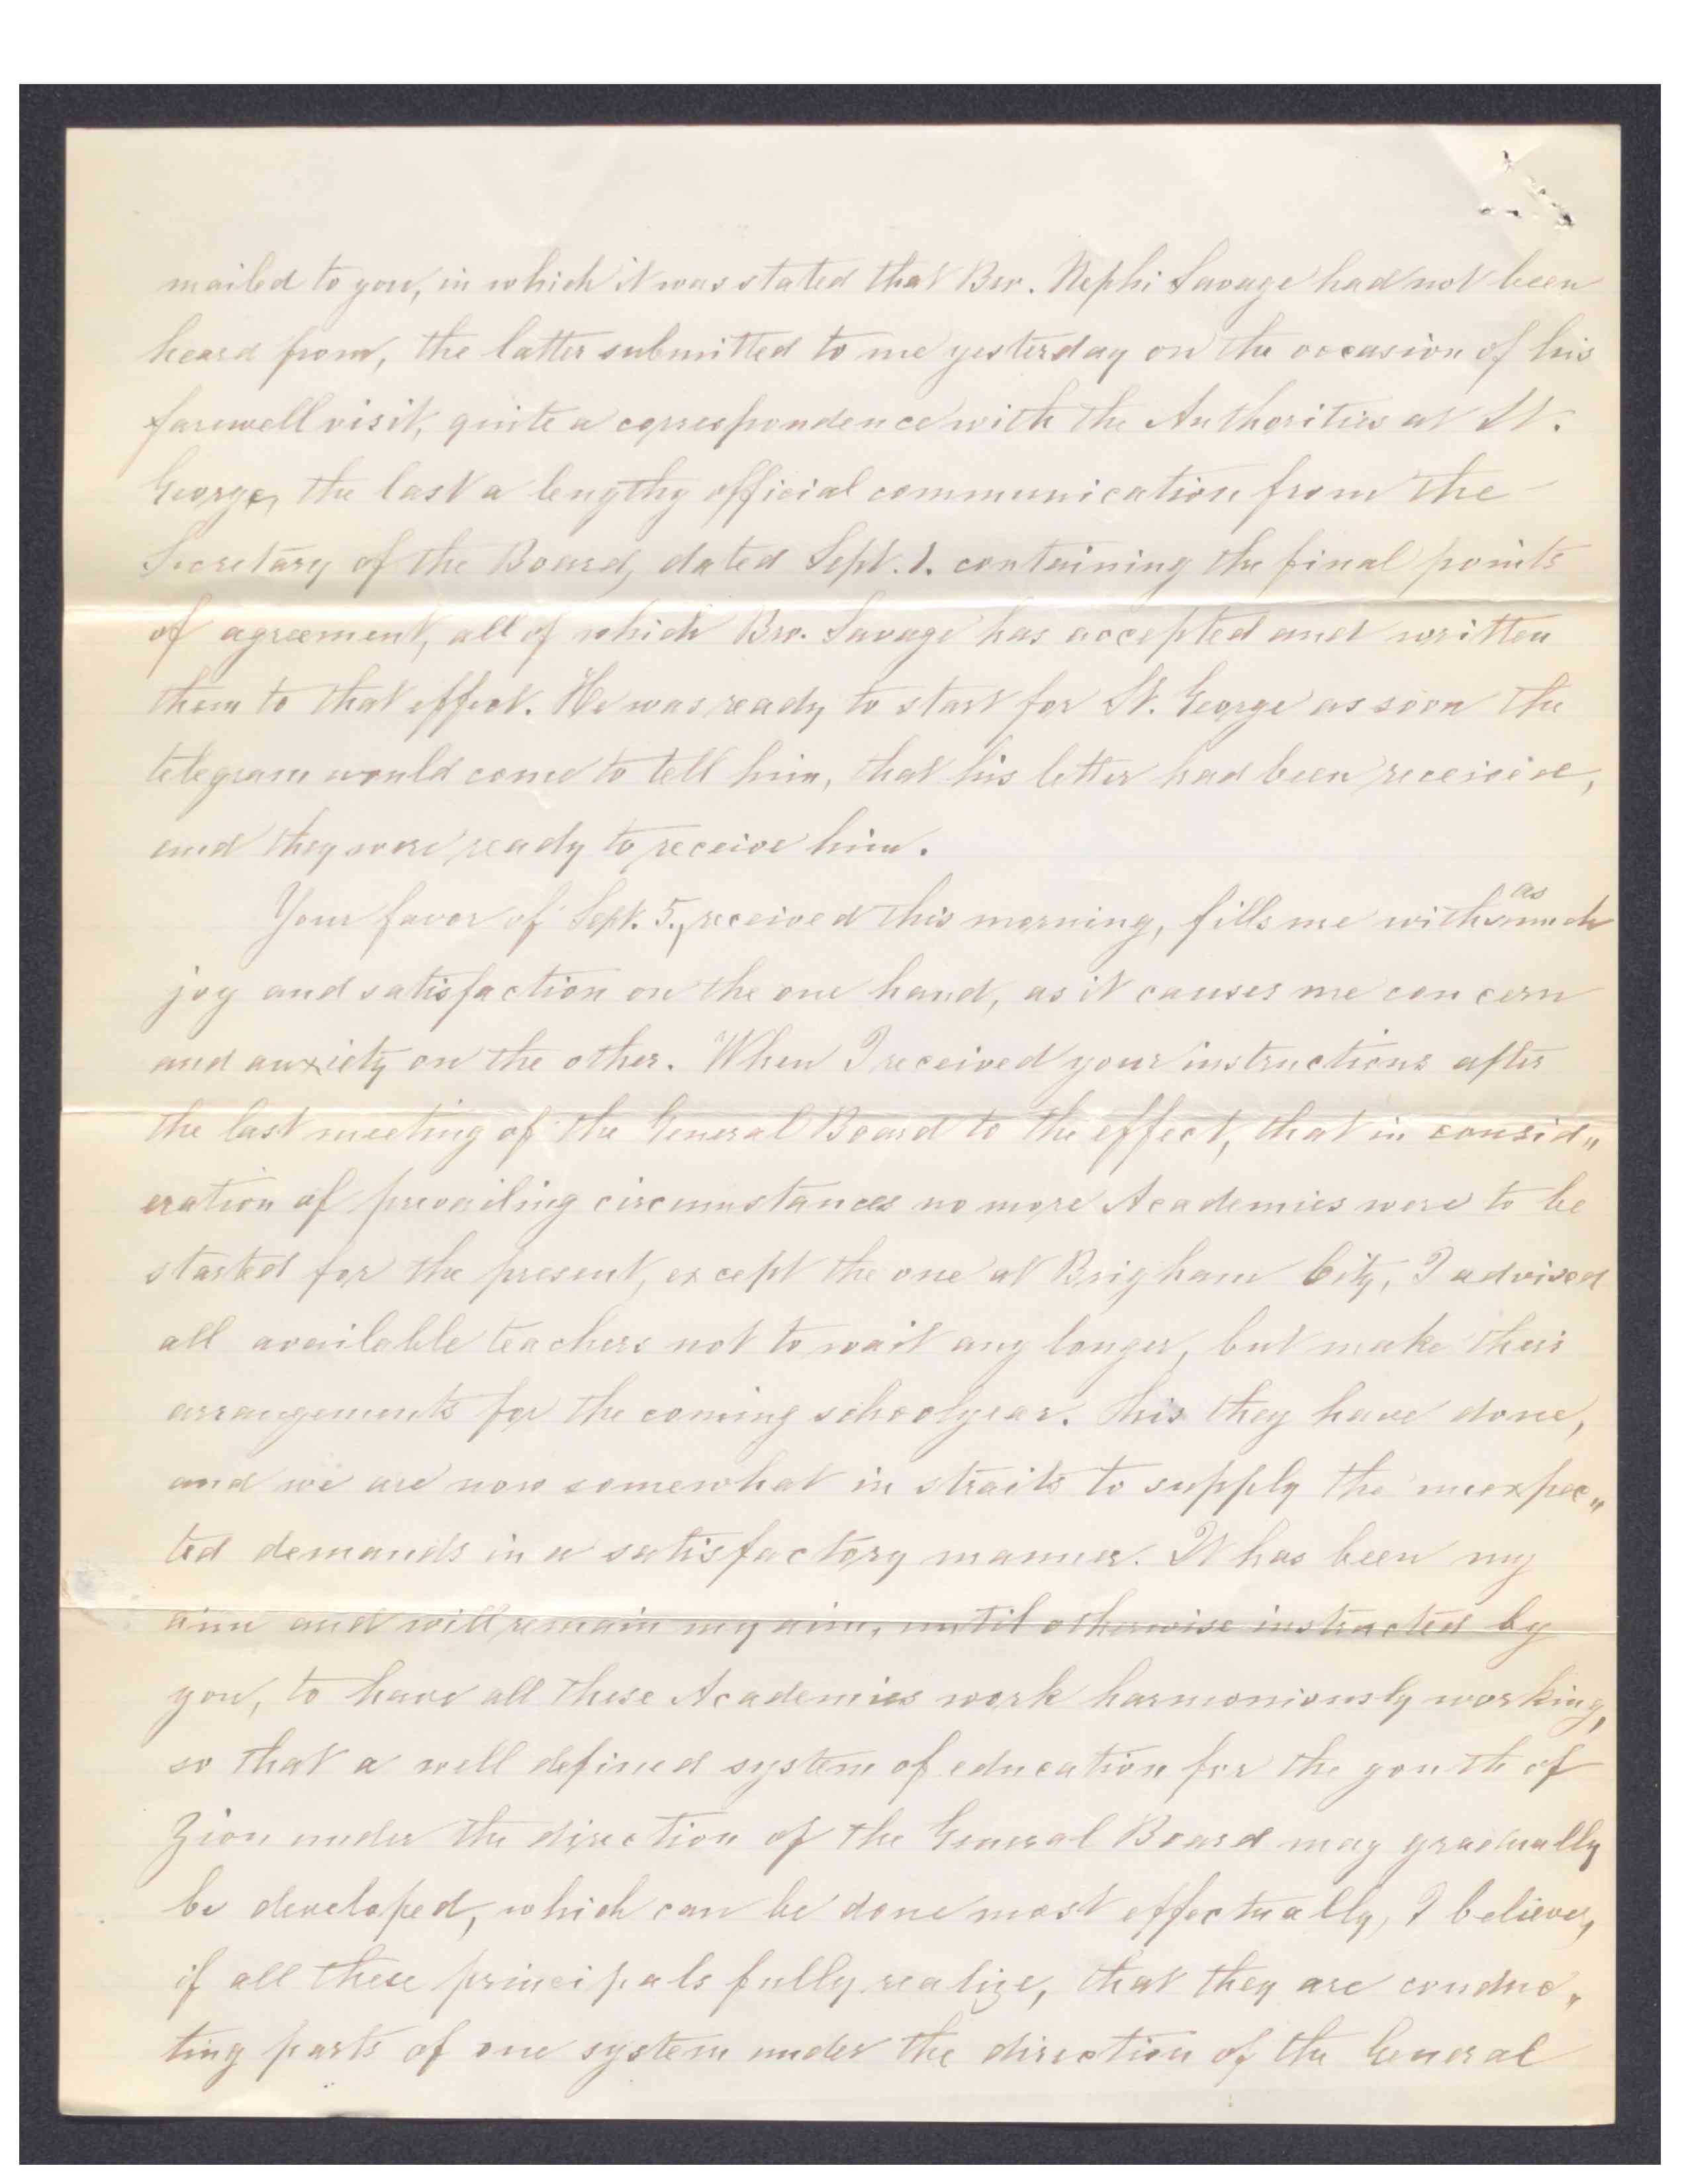 mailed to you, in which it was stated that Bro. Nephi Savage had not been
heard from, the latter submitted to me yesterday on the occasion of his
farewell visit, quite a correspondence with the Authorities at St.
George, the last a lengthy official communication from the
Secretary of the Board, dated Sept. 1. containing the final points
of agreement, all of which Bro. Savage has accepted and written
them to that effect. He was ready to start for St. George as soon the
telegram would come to tell him, that his letter had been received,
and they were ready to receive him.
Your favor of Sept. 5., received this morning, fills me with as much
joy and satisfaction on the one hand, as it causes me concern
and anxiety on the other. When I received your instructions after
the last meeting of the General Board to the effect, that in consid„
eration of prevailing circumstances no more Academies were to be
started for the present, except the one at Brigham City, I advised
all available teachers not to wait any longer, but make their
arrangements for the coming schoolyear. This they have done,
and we are now somewhat in straits to supply the unexpec„
ted demands in a satisfactory manner. It has been my
aim and will remain my aim, until otherwise instructed by
you, to have all these Academies work harmoniously working,
so that a well defined system of education for the youth of
Zion under the direction of the General Board may gradually
be developed, which can be done most effectually, I believe,
if all these principals fully realize, that they are conduc„
ting parts of one system under the direction of the General